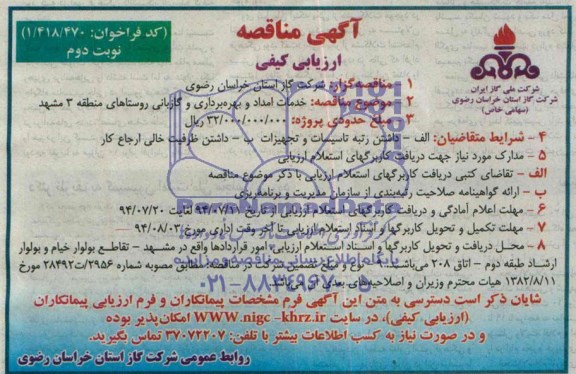 آگهی مناقصه
ارزیابی کیفی
(کد فراخوان: ۱/۴۱۸/۴۷۰)
نوبت دوم
شرکت ملی گاز ایران
شرکت گاز استان خراسان رضوی
(سهامی خاص)
۱ - مناقصه گزار: شرکت گاز استان خراسان رضوی
۲ - موضوع مناقصه: خدمات امداد و بهره‌برداری و گازبانی روستاهای منطقه ۳ مشهد
۳ - مبلغ حدودی پروژه: ۳۲/۰۰۰/۰۰۰/۰۰۰ ریال
۴ - شرایط متقاضیان: الف - داشتن رتبه تاسیسات و تجهیزات ب - داشتن ظرفیت خالی ارجاع کار
۵ - مدارک مورد نیاز جهت دریافت کاربرگهای استعلام ارزیابی
الف - تقاضای کتبی دریافت کاربرگهای استعلام ارزیابی با ذکر موضوع مناقصه
ب - ارائه گواهینامه صلاحیت رتبه‌بندی از سازمان مدیریت و برنامه‌ریزی
۶ - مهلت اعلام آمادگی و دریافت کاربرگهای استعلام ارزیابی از تاریخ ۹۴/۰۷/۱۱ لغایت ۹۴/۰۷/۲۰
۷ - مهلت تکمیل و تحویل کاربرگها و اسناد استعلام ارزیابی تا آخر وقت اداری مورخ: ۹۴/۰۸/۰۳
۸ - محل دریافت و تحویل کاربرگها و اسناد استعلام ارزیابی: امور قراردادها واقع در مشهد - تقاطع بولوار خیام و بولوار
ارشاد طبقه دوم - اتاق ۲۰۸ می‌باشد. ۹ - نوع و مبلغ تضمین شرکت در مناقصه: مطابق مصوبه شماره ۲۹۵۶/ت۲۸۴۹۲ مورخ
۱۳۸۲/۸/۱۱ هیات محترم وزیران و اصلاحیه‌های بعدی آن می‌باشد.
شایان ذکر است دسترسی به متن این آگهی فرم مشخصات پیمانکاران و فرم ارزیابی پیمانکاران
(ارزیابی کیفی)، در سایت WWW.nigc-khrz.ir امکان‌پذیر بوده
و در صورت نیاز به کسب اطلاعات بیشتر با تلفن: ۳۷۰۷۲۲۰۷ تماس بگیرید.
روابط عمومی شرکت گاز استان خراسان رضوی
۰۲۱-۸۸۳۴۹۶۷۰